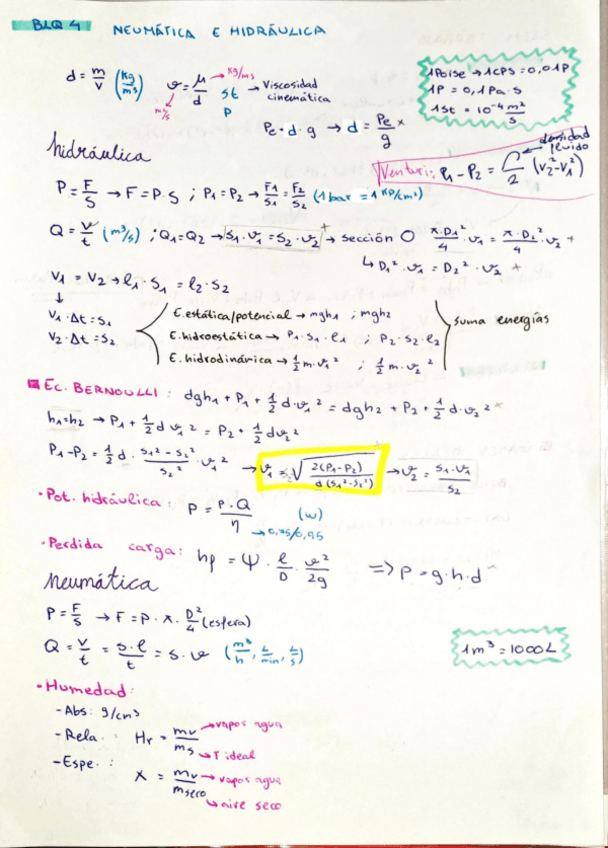 BLQ 4 NEUMÁTICA E HIDRÁULICA
d = m/v (kg/m³) 𝑣 = μ/d → kg/ms St → Viscosidad cinemática
m²/s P
1 Poise → 1 CPS = 0,01P
1P = 0,1 Pa·s
1St = 10⁻⁴ m²/s
Pe = d · g → d = Pe/g
hidráulica
Venturi: P1 - P2 = ρ/2 (v2² - v1²) densidad fluido
P = F/S → F = P·S ; P1 = P2 → F1/S1 = F2/S2 (1 bar = 1 KP/cm²)
Q = V/t (m³/s) ; Q1 = Q2 → S1·v1 = S2·v2 → sección O π·D1²/4 · v1 = π·D2²/4 · v2
↳ D1²·v1 = D2²·v2
V1 = V2 → l1·S1 = l2·S2
↓
V1·Δt = S1
V2·Δt = S2
E. estática/potencial → mgh1 ; mgh2
E. hidroestática → P1·S1·l1 ; P2·S2·l2
E. hidrodinámica → 1/2 m·v1² ; 1/2 m·v2²
suma energías
Ec. BERNOULLI: dgh1 + P1 + 1/2 d·v1² = dgh2 + P2 + 1/2 d·v2²
h1=h2 → P1 + 1/2 d v1² = P2 + 1/2 dv2²
P1 - P2 = 1/2 d · S1² - S2²/S2² · v1² → v1 = S2 √2(P1-P2)/d(S1²-S2²) → v2 = S1·v1/S2
· Pot. hidráulica: P = P·Q/η (w)
→ 0,75/0,95
· Perdida carga: hp = Ψ · l/D · v²/2g => P = g·h·d
neumática
P = F/S → F = P · π · D²/4 (esfera)
Q = V/t = S·l/t = S·v (m³/h, L/min, L/s)
1m³ = 1000L
· Humedad:
- Abs: g/cm³
- Rela.: Hr = mv/ms → vapor agua
→ T ideal
- Espe.: X = mv/mseco → vapor agua
↳ aire seco